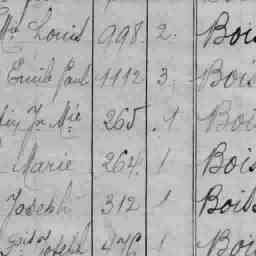 Mie Louis 998. 2. Bois
Emile Paul 1112 3. Bois
Jn Mie 265. 1 Bois
Marie 264. 1 Bois
Joseph 312 1 Bois
Joseph 476 1 Bois